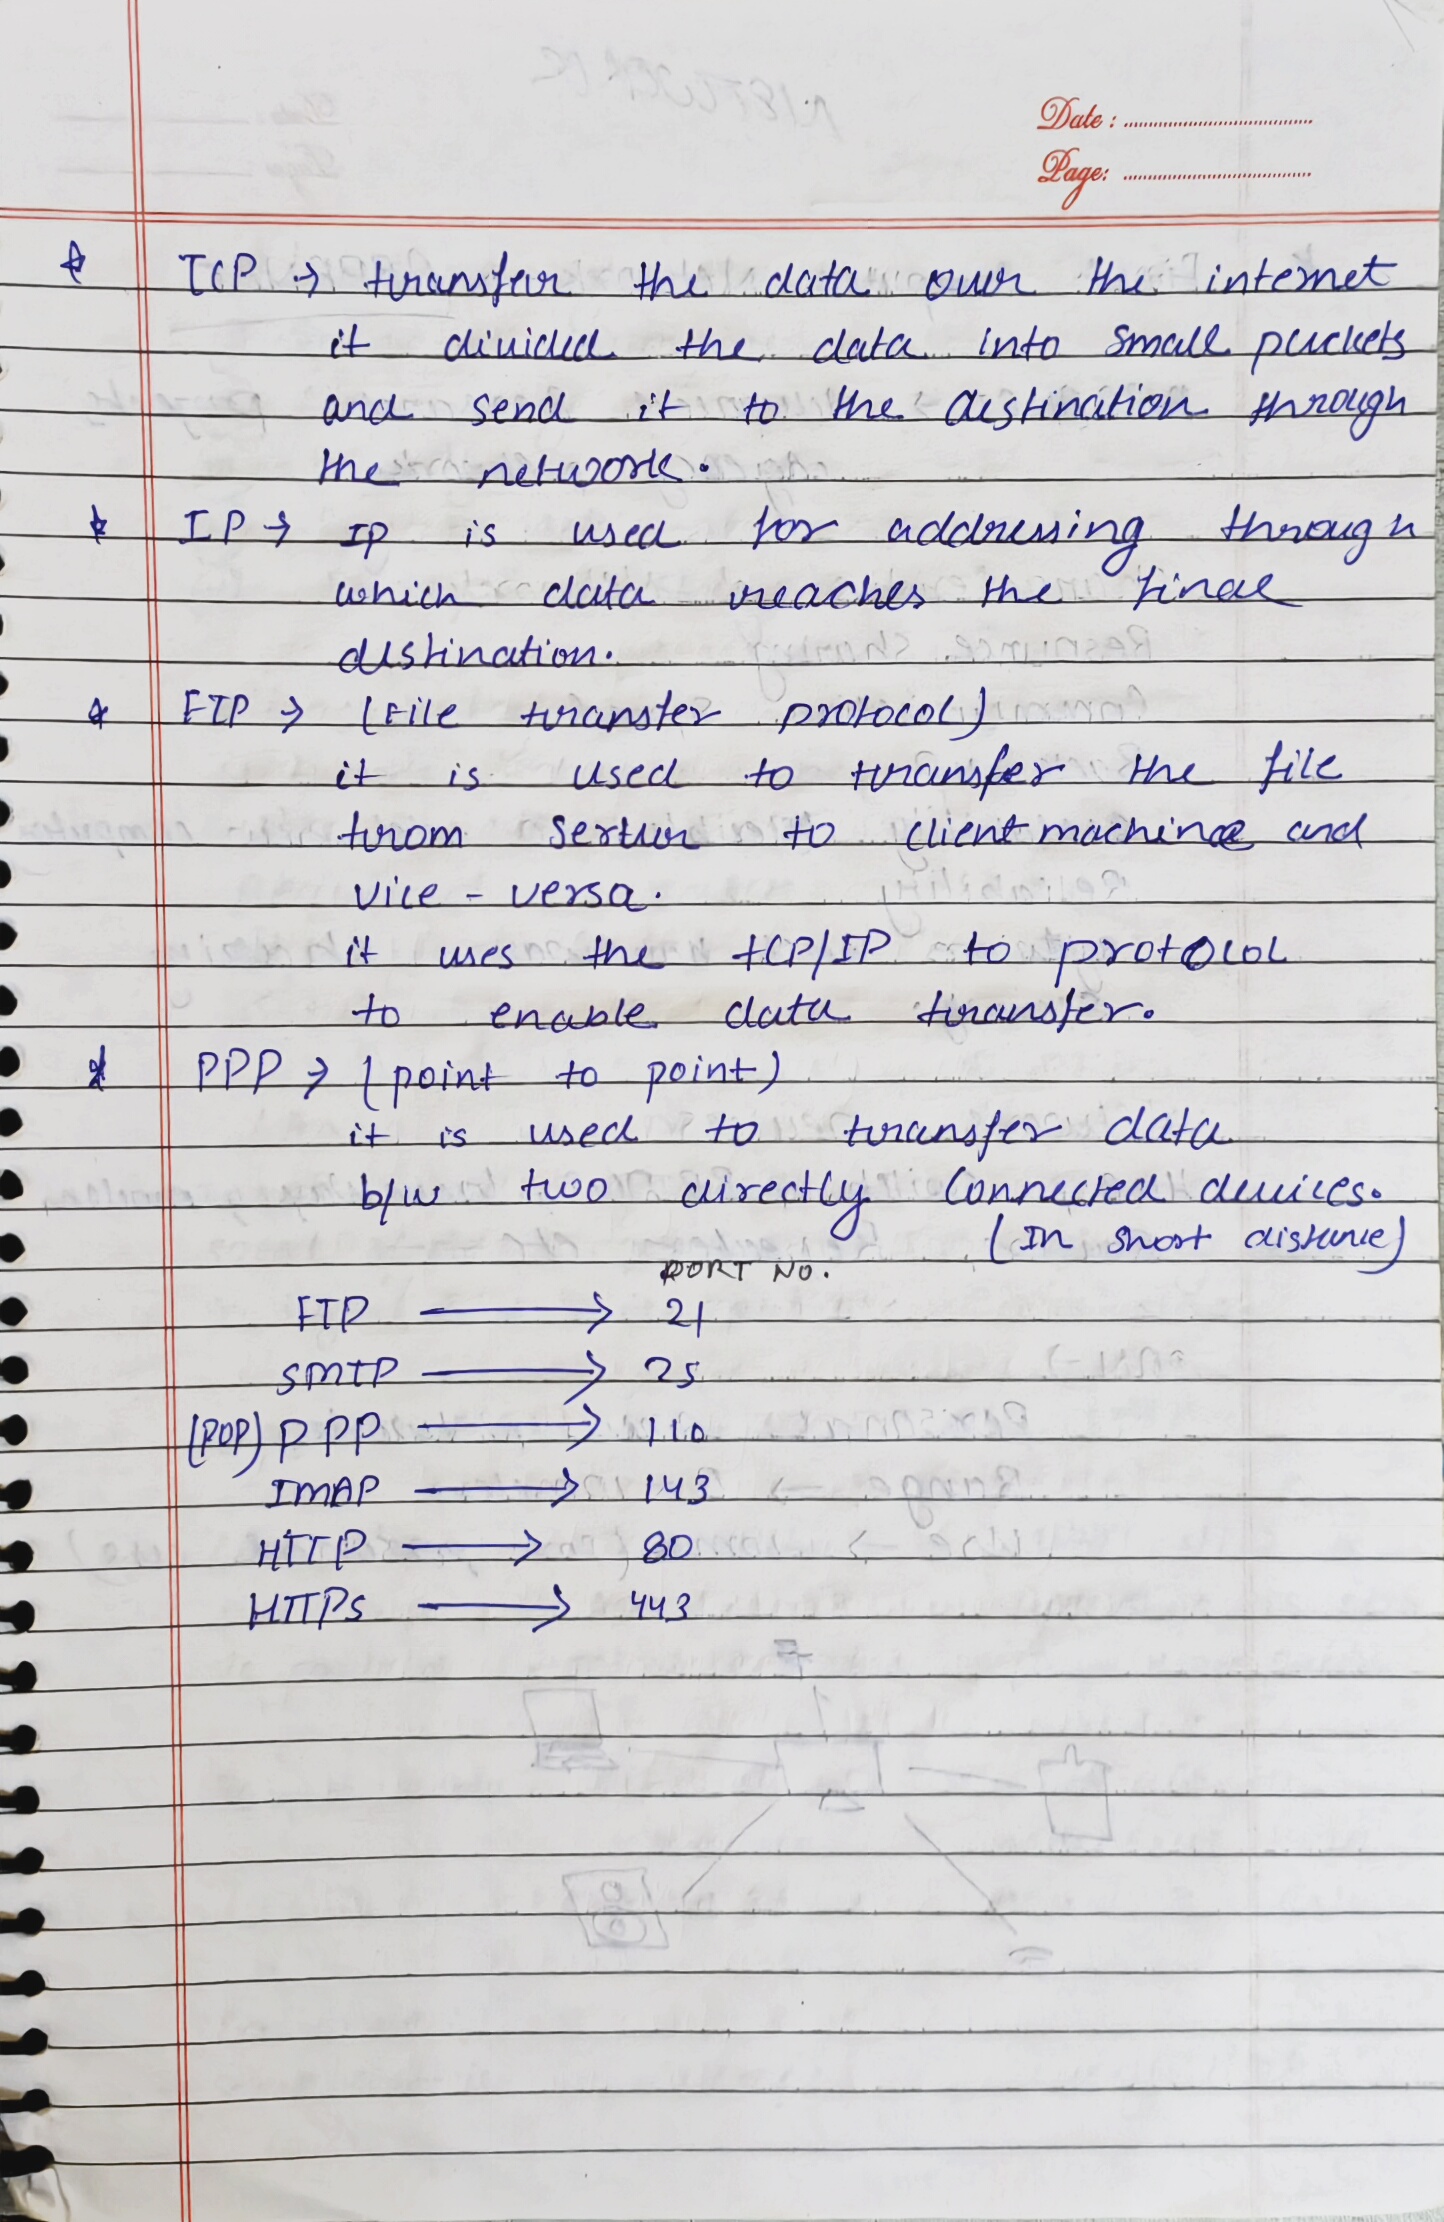 Date :
Page:
* TCP → transfer the data over the internet
it divided the data into small packets
and send it to the destination through
the network.
* IP → IP is used for addressing through
which data reaches the final
destination.
* FTP → (File transfer protocol)
it is used to transfer the file
from server to client machine and
vice - versa.
it uses the tCP/IP to protocol
to enable data transfer.
* PPP → (point to point)
it is used to transfer data
b/w two directly connected devices.
(In short distance)
PORT NO.
FTP → 21
SMTP → 25
(POP) PPP → 110
IMAP → 143
HTTP → 80
HTTPs → 443